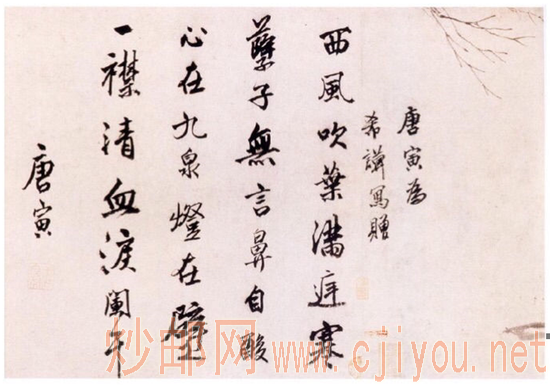 唐寅為
希謨寫贈
西風吹葉滿庭寒
孽子無言鼻自酸
心在九泉燈在壁
一襟清血淚闌干
唐寅
炒邮网 www.cjiyou.net